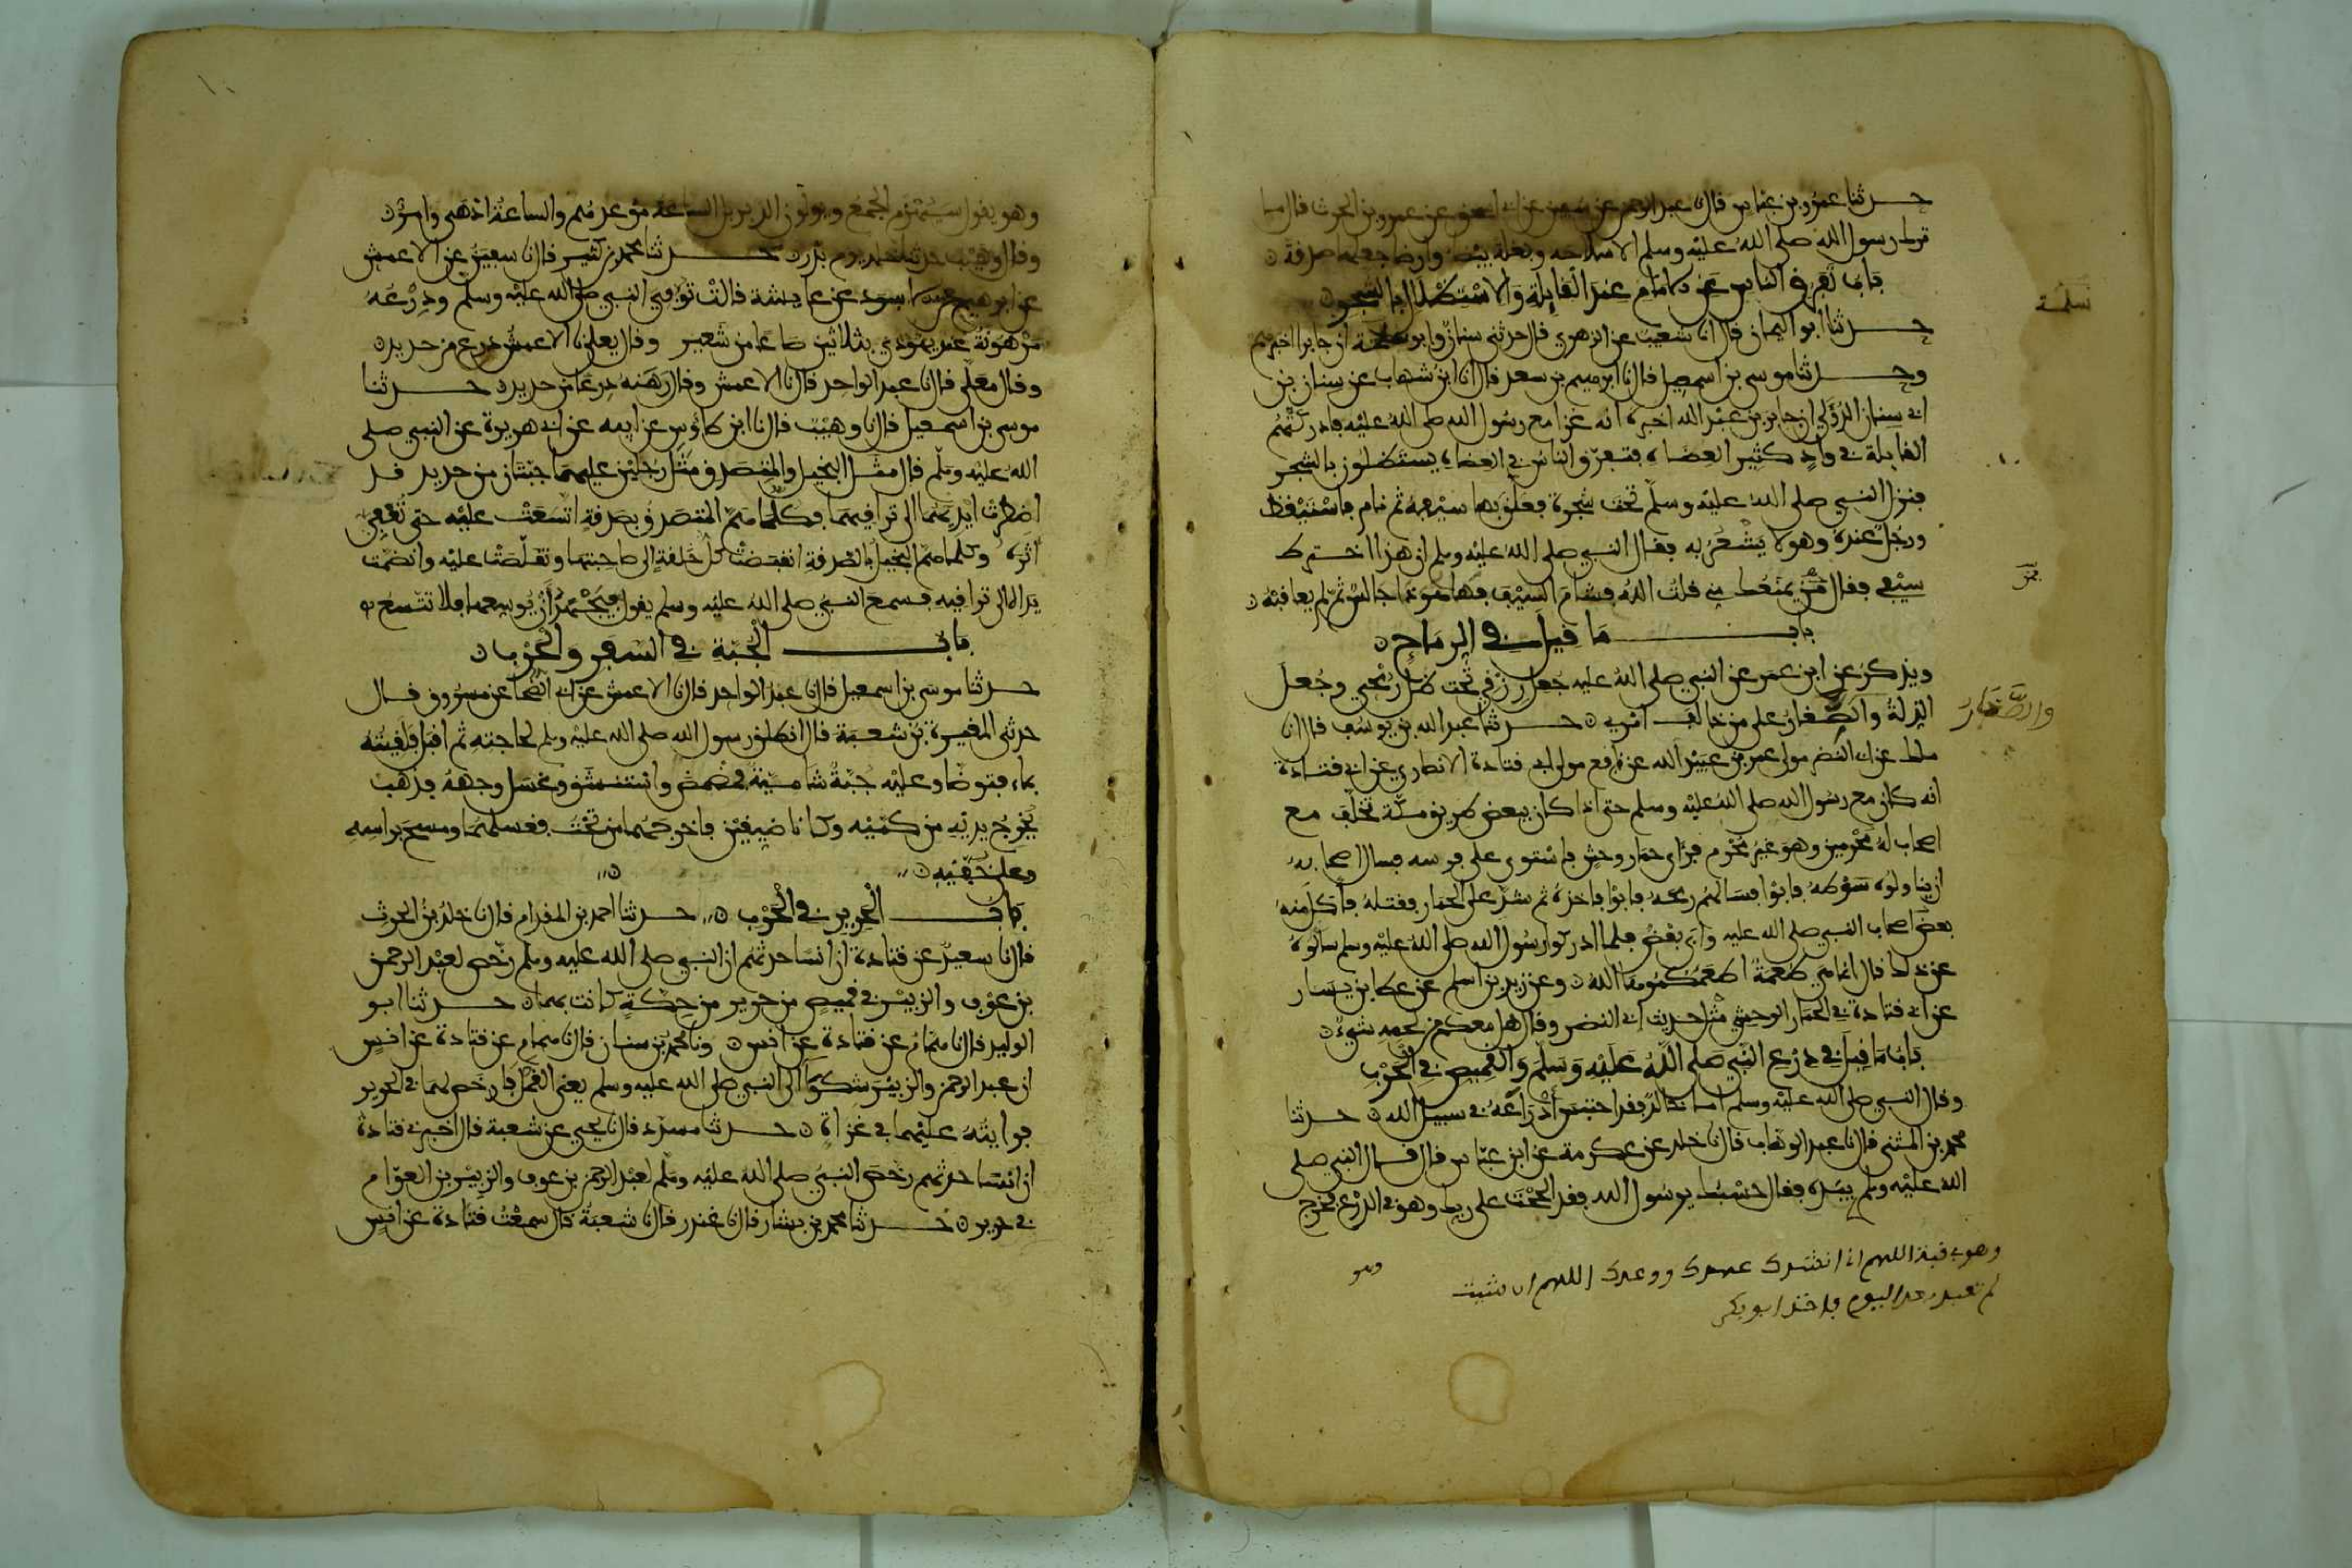 حدثنا عمرو بن عباس قال نا عبد الرحمن عن سفين عن ابى اسحق عن عمرو بن الحرث قال ما
ترك رسول الله صلى الله عليه وسلم الا سلاحه وبغلة بيضا وارضا جعلها صدقة
باب تفرق الناس عن الامام عند القايلة والاستظلال بالشجر
سلمة
حدثنا ابو اليمان قال انا شعيب عن الزهري قال حدثنى سنان وابو سلمة ان جابرا اخبرهم
وحدثنا موسى بن اسمعيل قال نا ابرهيم بن سعد قال انا ابن شهاب عن سنان بن
ابى سنان الدؤلي ان جابر بن عبد الله اخبره انه غزا مع رسول الله صلى الله عليه فادركتهم
القايلة في واد كثير العضاه فتفرق الناس في العضاه يستظلون بالشجر
فنزل النبي صلى الله عليه وسلم تحت شجرة فعلق بها سيفه ثم نام فاستيقظ
ورجل عنده وهو لا يشعر به فقال النبي صلى الله عليه وسلم ان هذا اخترط
سيفى فقال من يمنعك مني قلت الله فشام السيف فها هو ذا جالس ثم لم يعاقبه
باب ما قيل في الرماح
ويذكر عن ابن عمر عن النبي صلى الله عليه جعل رزقي تحت ظل رمحي وجعل
والصغار
الذلة والصغار على من خالف امري حدثنا عبد الله بن يوسف قال انا
ملك عن ابى النضر مولى عمر بن عبيد الله عن نافع مولى ابى قتادة الانصاري عن ابى قتادة
انه كان مع رسول الله صلى الله عليه وسلم حتى اذا كان ببعض طريق مكة تخلف مع
اصحاب له محرمين وهو غير محرم فرأى حمار وحش فاستوى على فرسه فسال اصحابه
ان يناولوه سوطه فابوا فسالهم رمحه فابوا فاخذه ثم شد على الحمار فقتله فاكل منه
بعض اصحاب النبي صلى الله عليه وابى بعض فلما ادركوا رسول الله صلى الله عليه وسلم سالوه
عن ذلك قال انما هي طعمة اطعمكموها الله وعن زيد بن اسلم عن عطا بن يسار
عن ابى قتادة في الحمار الوحشي مثل حديث ابى النضر وقال هل معكم من لحمه شيء
باب ما قيل في درع النبي صلى الله عليه وسلم والقميص في الحرب
وقال النبي صلى الله عليه وسلم اما خالد فقد احتبس أدراعه في سبيل الله حدثنا
محمد بن المثنى قال نا عبد الوهاب قال نا خلد عن عكرمة عن ابن عباس قال قال النبي صلى
الله عليه وسلم بيده فقال حسبك يرسول الله فقد الححت على ربك وهو في الدرع فخرج
وهو في قبة اللهم انى انشدك عهدك ووعدك اللهم ان شيت
لم تعبد بعد اليوم فاخذ ابو بكر
وهو
وهو يقول سيهزم الجمع ويولون الدبر بل الساعة موعدهم والساعة ادهى وامر
وقال وهيب حدثنا خلد يوم بدر حدثنا محمد بن كثير قال انا سفين عن الاعمش
عن ابرهيم عن الاسود عن عايشة قالت توفي النبي صلى الله عليه وسلم ودرعه
مرهونة عند يهودي بثلاثين صاعا من شعير وقال يعلى نا الاعمش درع من حديد
وقال معلى قال نا عبد الواحد قال نا الاعمش وقال رهنه درعا من حديد حدثنا
موسى بن اسمعيل قال نا وهيب قال نا ابن طاوس عن ابيه عن ابى هريرة عن النبي صلى
الله عليه وسلم قال مثل البخيل والمتصدق مثل رجلين عليهما جبتان من حديد قد
اضطرت ايديهما الى تراقيهما فكلما هم المتصدق بصدقة اتسعت عليه حتى تعفي
اثره وكلما هم البخيل بالصدقة انقبضت كل حلقة الى صاحبتها وتقلصت عليه وانضمت
يداه الى تراقيه فسمع النبي صلى الله عليه وسلم يقول فيجتهد أن يوسعها فلا تتسع
باب الجبة في السفر والحرب
حدثنا موسى بن اسمعيل قال نا عبد الواحد قال نا الاعمش عن ابى الضحا عن مسروق قال
حدثنى المغيرة بن شعبة قال انطلق رسول الله صلى الله عليه وسلم لحاجته ثم اقبل فلقيته
بماء فتوضا وعليه جبة شامية فمضمض واستنشق وغسل وجهه فذهب
يخرج يديه من كميه وكانا ضيقين فاخرجهما من تحت فغسلهما ومسح براسه
وعلى خفيه
باب الحرير في الحرب حدثنا احمد بن المقدام قال نا خلد بن الحرث
قال نا سعيد عن قتادة ان انسا حدثهم ان النبي صلى الله عليه وسلم رخص لعبد الرحمن
بن عوف والزبير في قميص من حرير من حكة كانت بهما حدثنا ابو
الوليد قال نا همام عن قتادة عن انس ونا محمد بن سنان قال نا همام عن قتادة عن انس
ان عبد الرحمن والزبير شكوا الى النبي صلى الله عليه وسلم يعنى القمل فارخص لهما في الحرير
فرايته عليهما في غزاة حدثنا مسدد قال نا يحيى عن شعبة قال اخبرنى قتادة
ان انسا حدثهم رخص النبي صلى الله عليه وسلم لعبد الرحمن بن عوف والزبير بن العوام
في حرير حدثنا محمد بن بشار قال نا غندر قال نا شعبة قال سمعت قتادة عن انس